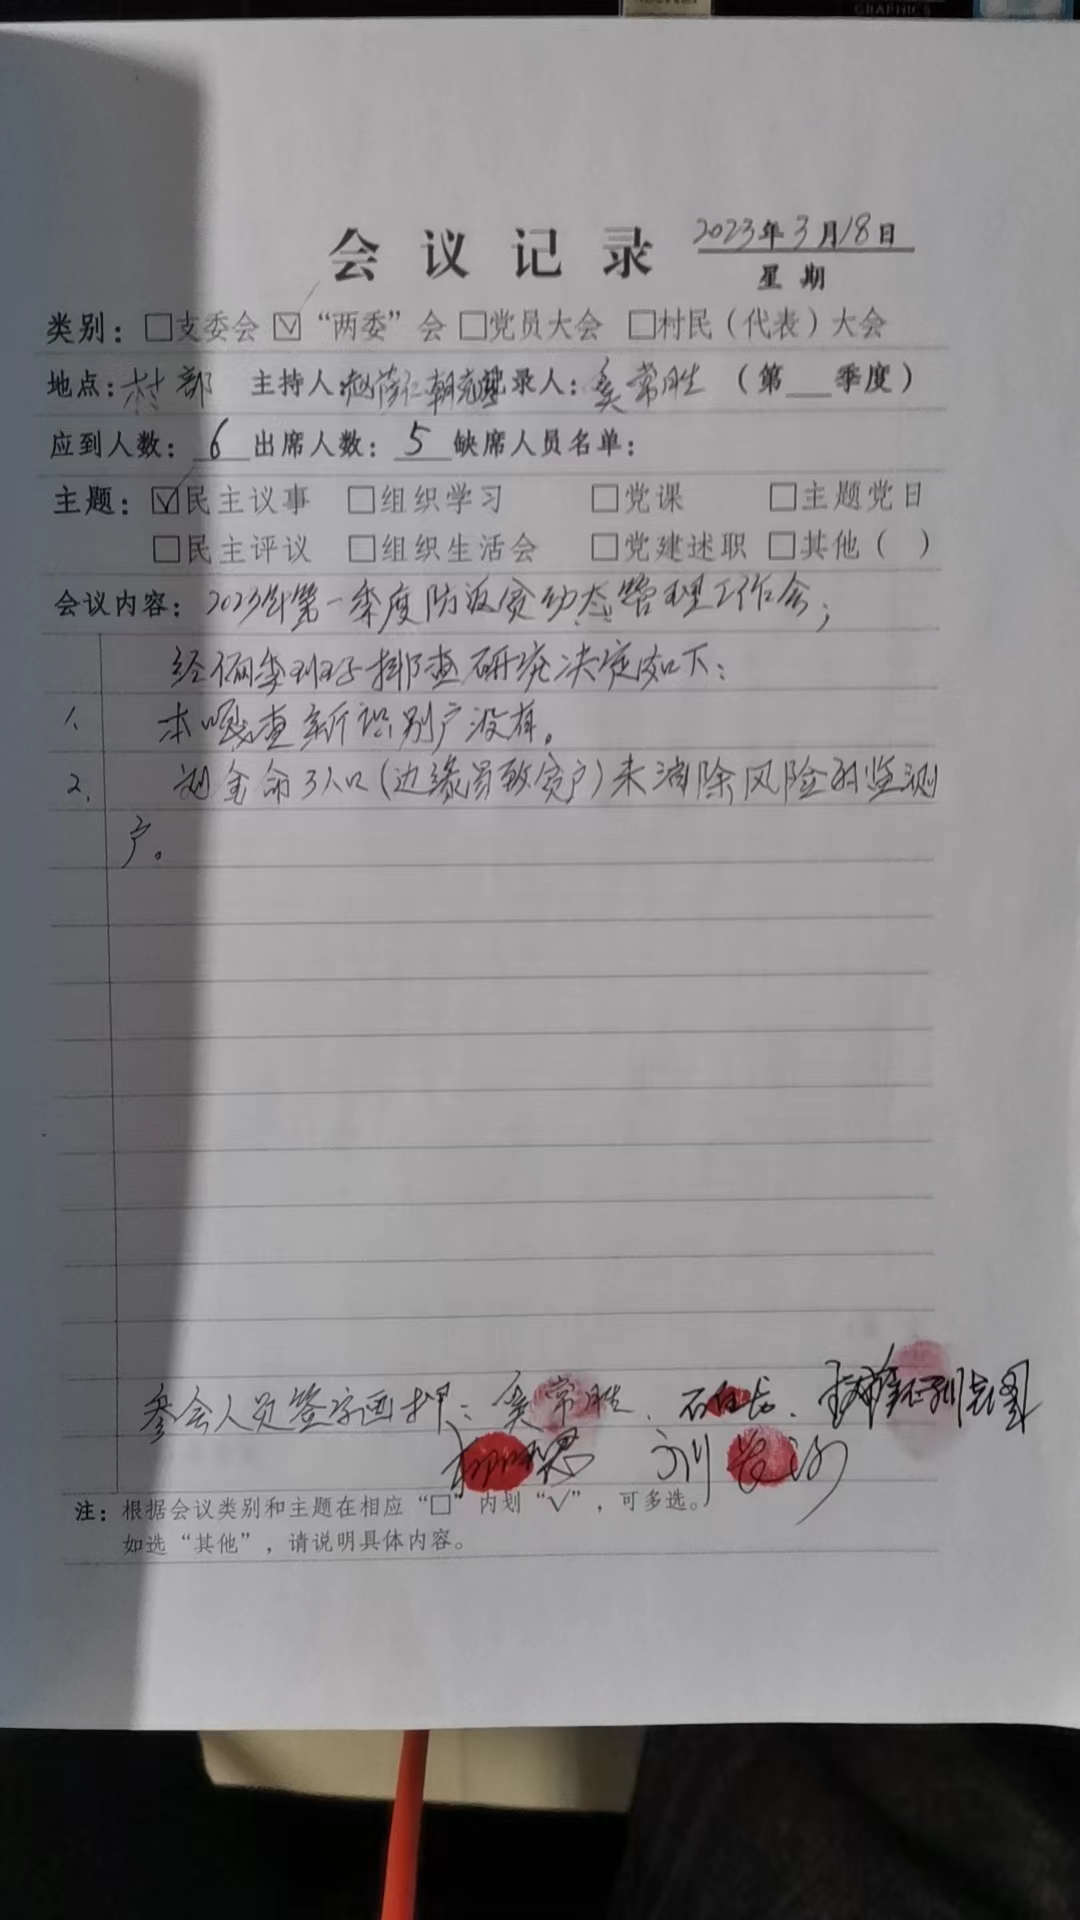 GRAPHICS
会议记录 2023年3月18日
星期
类别：□支委会 ☑“两委”会 □党员大会 □村民（代表）大会
地点：村部 主持人： 记录人：奚常胜 （第 季度）
应到人数：6 出席人数：5 缺席人员名单：
主题：☑民主议事 □组织学习 □党课 □主题党日
□民主评议 □组织生活会 □党建述职 □其他（ ）
会议内容：2023年第一季度防返贫动态管理工作会；
经俩委班子排查研究决定如下：
1. 本嘎查新识别户没有。
2. 金命3人口（边缘易致贫户）未消除风险的监测
户。
参会人员签字画押：奚常胜、
注：根据会议类别和主题在相应“□”内划“√”，可多选。
如选“其他”，请说明具体内容。